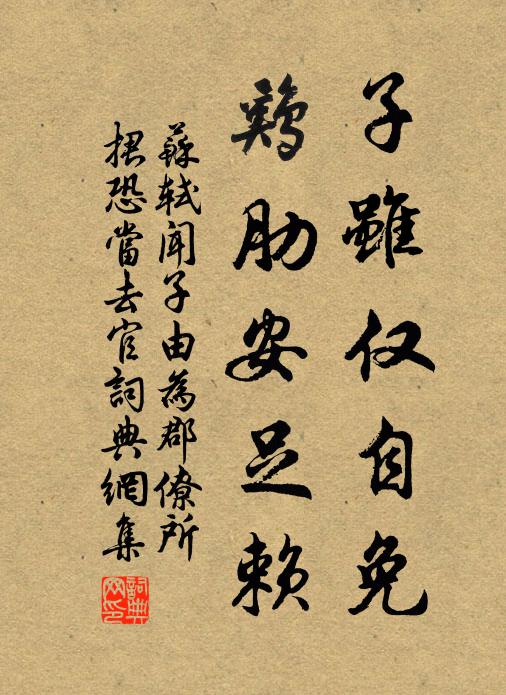 子雖仅自免
鷄肋安足賴
蘇軾闻子由為郡僚所
捃恐當去官詞典網集
詞典网印